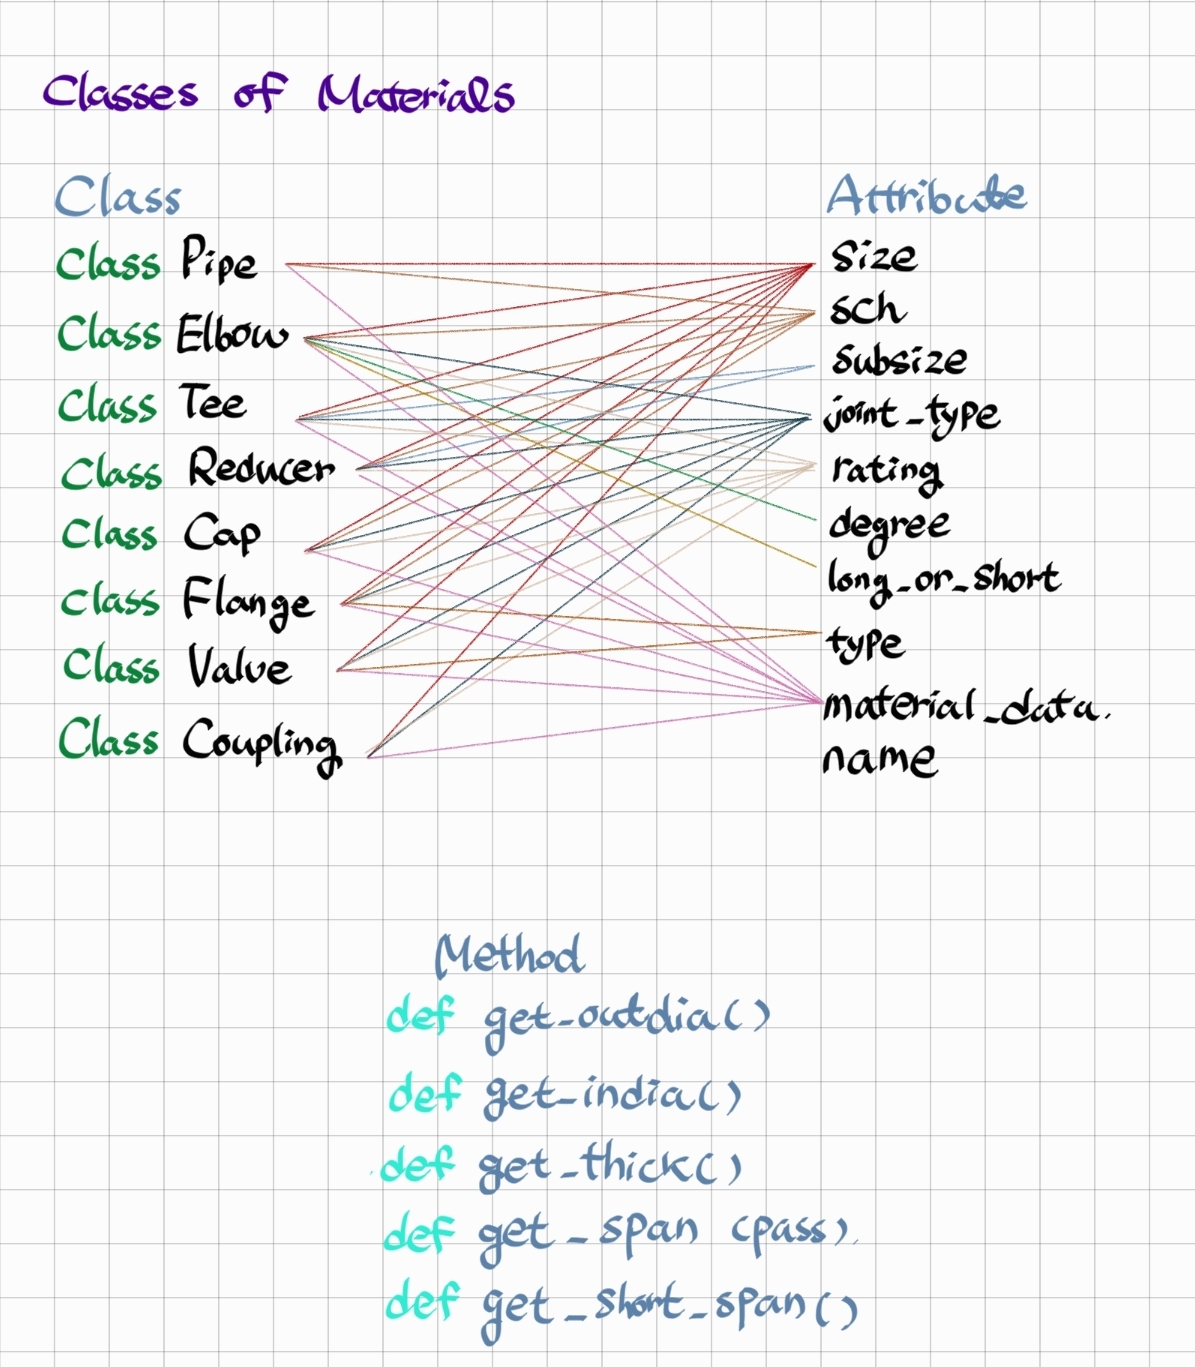 Classes of Materials
Class Attribute
Class Pipe size
Class Elbow sch
subsize
Class Tee joint_type
Class Reducer rating
Class Cap degree
Class Flange long_or_short
Class Valve type
material_data.
Class Coupling name
Method
def get_outdia()
def get_india()
def get_thick()
def get_span (pass).
def get_short_span()